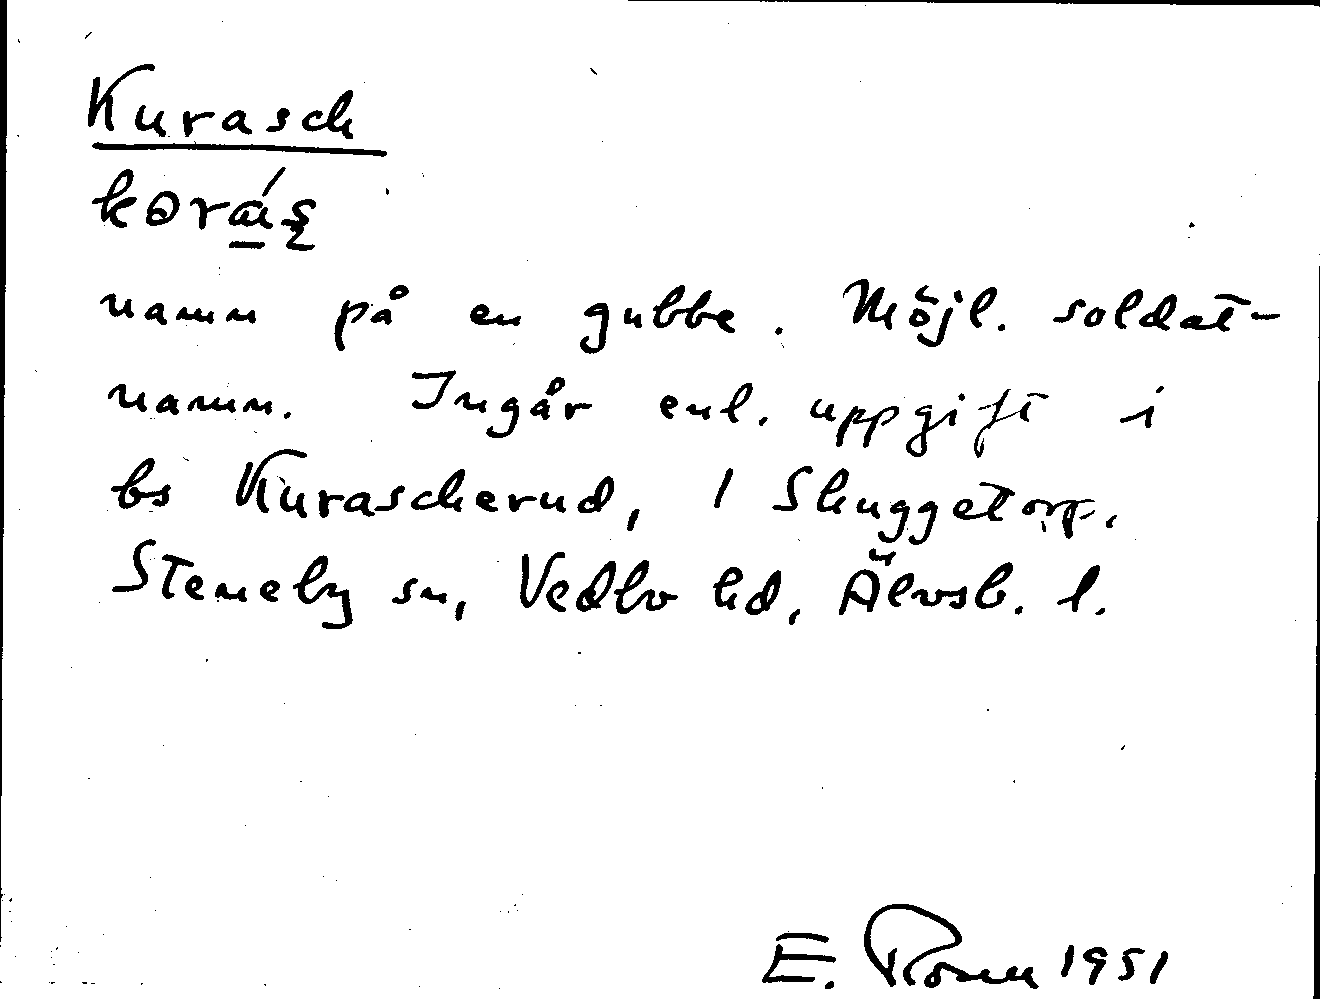 Kurasch
korá̱ʂ
namn på en gubbe. Möjl. soldat-
namn. Ingår enl. uppgift i
bs Kurascherud, 1 Skuggetorp,
Steneby sn, Vedbo hd, Älvsb. l.
E. Rosen 1951